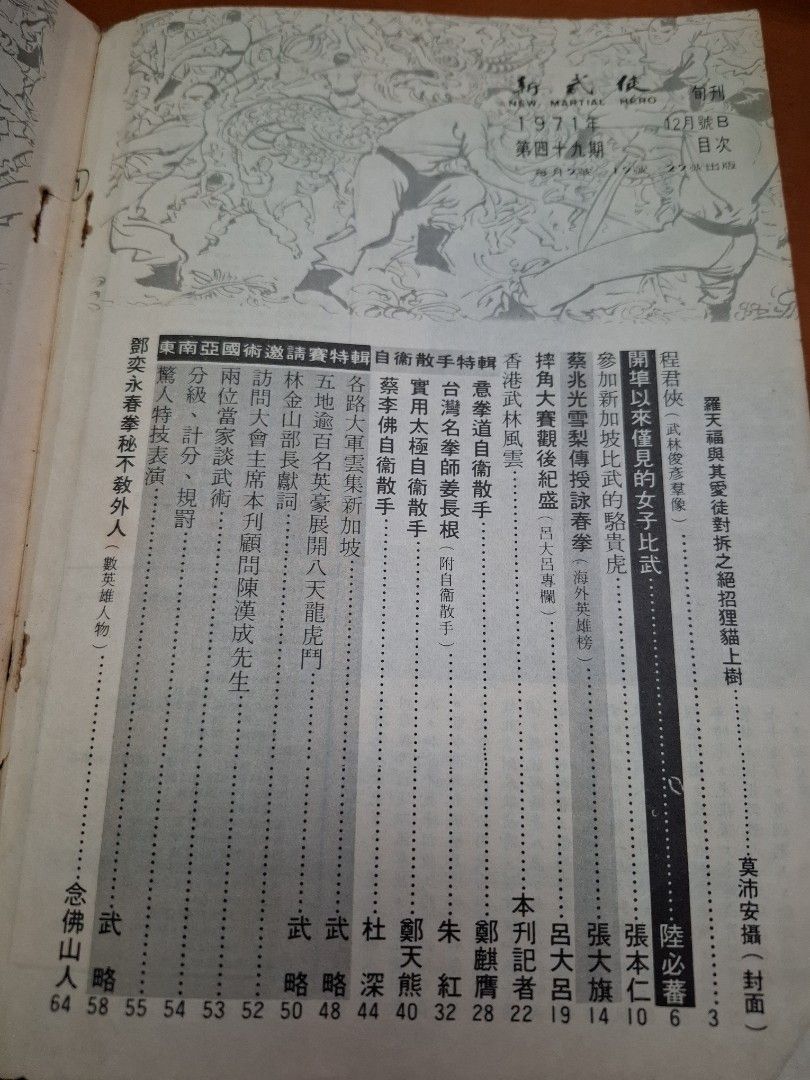 新武俠 旬刊
NEW MARTIAL HERO
1971年 12月號B
第四十九期 目次
每月9號 19號 29號出版
羅天福與其愛徒對拆之絕招狸貓上樹 莫沛安攝(封面)
程君俠(武林俊彥羣像) 3
開埠以來僅見的女子比武 陸必蕃 6
參加新加坡比武的駱貴虎 張本仁 10
蔡兆光雪梨傳授詠春拳(海外英雄榜) 張大旗 14
摔角大賽觀後紀盛(呂大呂專欄) 呂大呂 19
香港武林風雲 本刊記者 22
自衞散手特輯
意拳道自衞散手 鄭麒膺 28
台灣名拳師姜長根(附自衞散手) 朱紅 32
實用太極自衞散手 鄭天熊 40
蔡李佛自衞散手 杜深 44
東南亞國術邀請賽特輯
各路大軍雲集新加坡 武略 48
五地逾百名英豪展開八天龍虎鬥 武略 50
林金山部長獻詞 52
訪問大會主席本刊顧問陳漢成先生 53
兩位當家談武術 54
分級、計分、規罰 55
驚人特技表演 武略 58
鄧奕永春拳秘不教外人(數英雄人物) 念佛山人 64